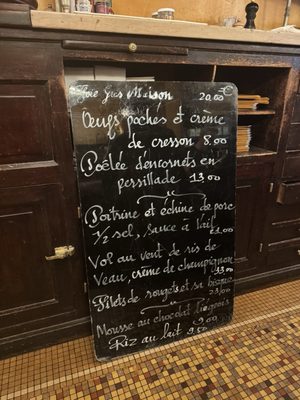 Foie Gras Maison 20.00€
Œufs pochés et crème
de cresson 8.00
Poêlée d'encornets en
persillade 13.00
Poitrine et échine de porc
1/2 sel, sauce a l'ail
21.00
Vol au vent de ris de
Veau, crème de champignon
Filets de rougets et sa bisque
23.00
Mousse au chocolat liegeois
9.00
Riz au lait 9.50